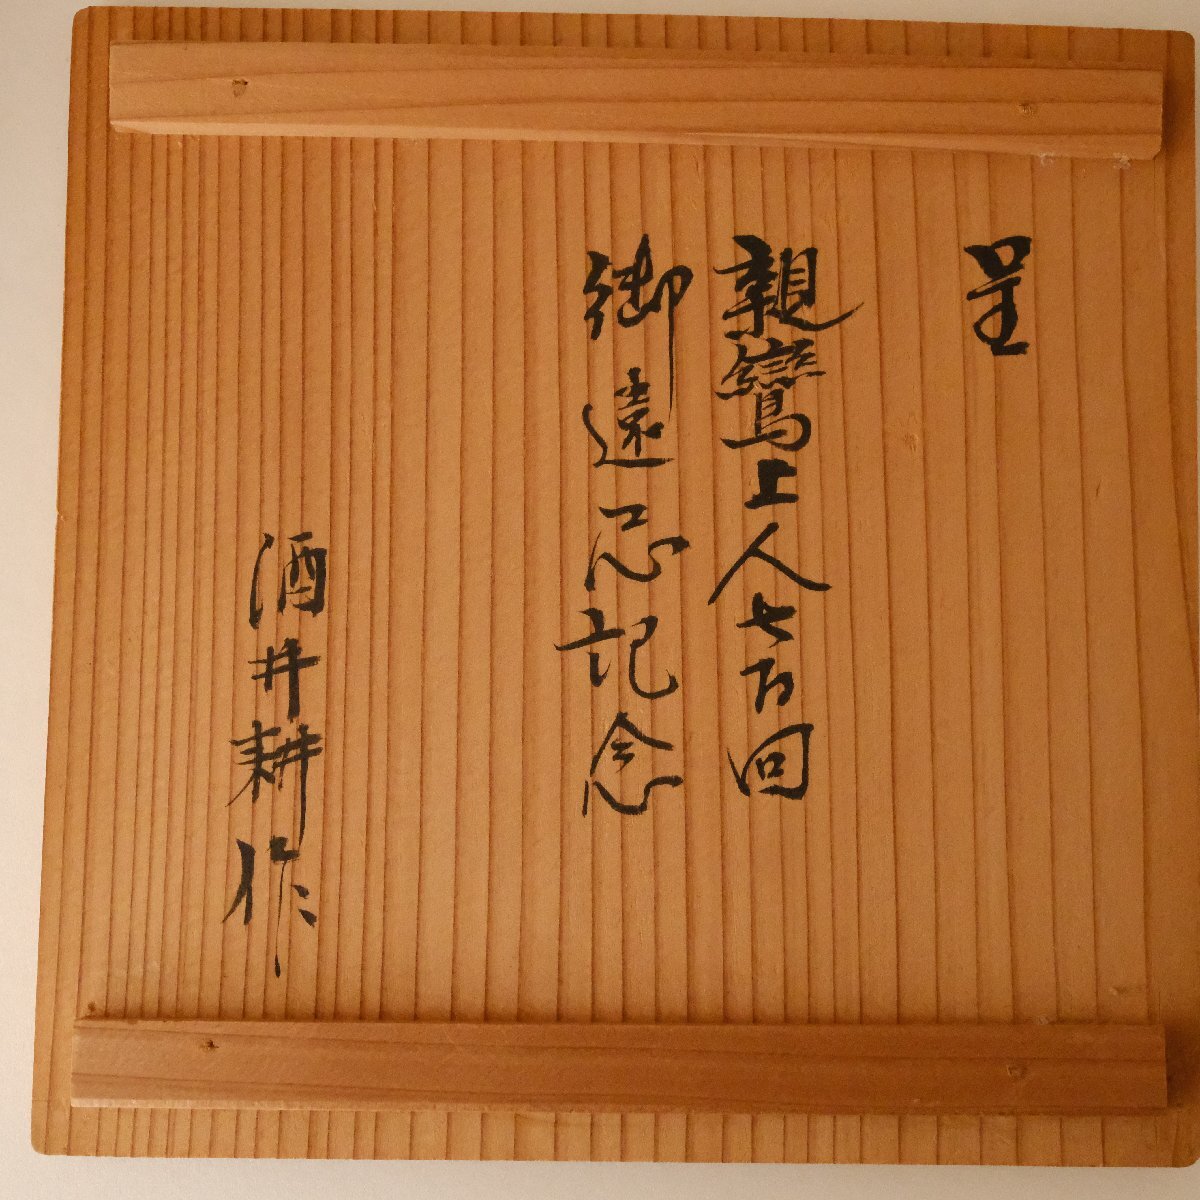 呈
親鸞上人七百回
御遠忌記念
酒井耕作